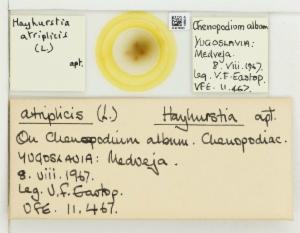 Hayhurstia
atriplicis
(L.)
apt.
Chenopodium album
YUGOSLAVIA:
Medveja.
8. viii. 1967.
leg. V.F. Eastop.
VFE. 11.467.
atriplicis (L.) Hayhurstia apt.
On Chenopodium album. Chenopodiac.
YUGOSLAVIA: Medveja.
8. viii. 1967.
Leg. V.F. Eastop.
VFE. 11.467.